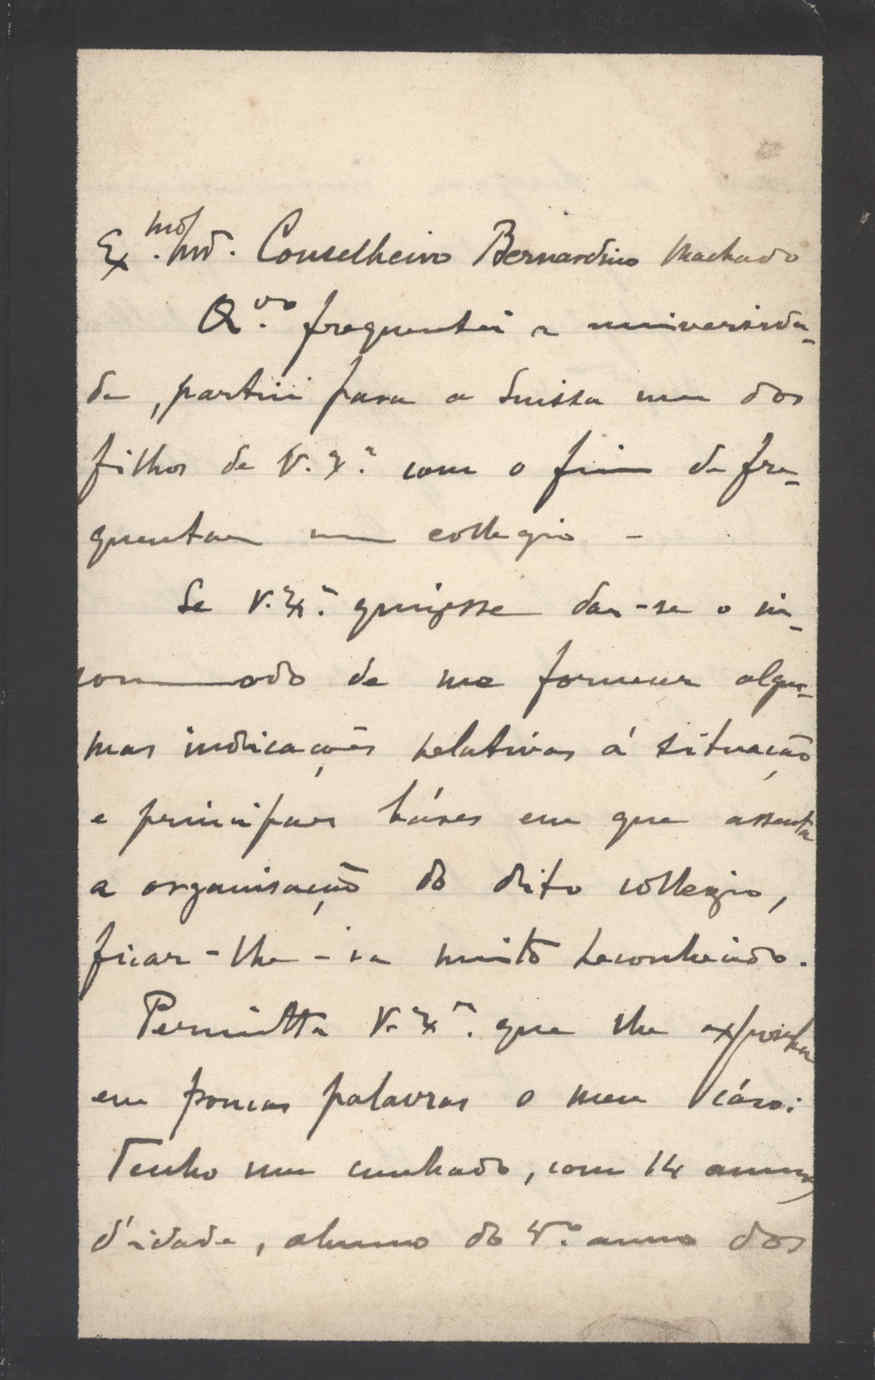 Ex.mo Snr. Conselheiro Bernardino Machado
Q.do frequentei a universida-
de, partiu para a Suissa um dos
filhos de V. Ex.ª com o fim de fre-
quentar um collegio -
Se V. Ex.ª quizesse dar-se o in-
commodo de me fornecer algu-
mas indicações relativas á situação
e principaes báses em que assenta
a organisação do dito collegio,
ficar-lhe-ia muito reconhecido.
Permitta V. Ex.ª que lhe exponha
em poucas palavras o meu cáso:
Tenho um cunhado, com 14 annos
d'idade, alumno do 4.º anno dos